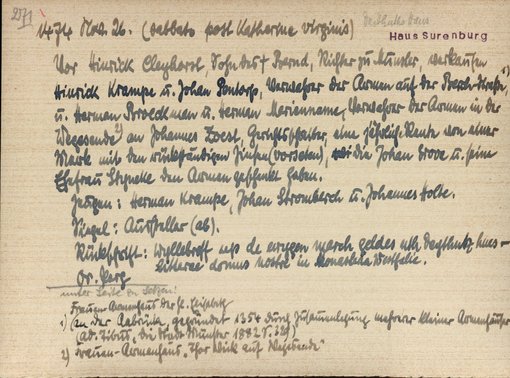 271
1474 Nov. 26. (sabbato post Katharine virginis)
Haus Surenburg
Vor Hinrick Cleyhorst, Sohn des † Bernd, Richter zu Münster, verkaufen
Hinrick Krampe u. Johan Pentorp, Verwahrer der Armen auf der Berch-Straße, 1)
u. Herman Broeckman u. Herman Mariename, Verwahrer der Armen in der
Wegesende 2) an Johannes Zoest, Gerichtsschreiber, eine jährliche Rente von einer
Mark mit den rückständigen Zinsen (vorseten), die Johan Drove u. seine
Ehefrau Styneke den Armen geschenkt haben.
Zeugen: Herman Krampe, Johan Stromberch u. Johannes Holte.
Siegel: Aussteller (ab).
Rückschrift: Wyllebreff up de ewygen march geldes uth
litterae domus nostre in Monasterio Westfalie.
Or. Perg.
unter Seite
Frauen-Armenhaus der hl. Elisabeth
1) An der Aabrücke, gegründet 1354 durch Zusammenlegung mehrerer kleiner Armenhäuser
(Ad. Tibus, Die Stadt Münster 1882 S.
2) Frauen-Armenhaus "Thor Wick auf Wegesende"